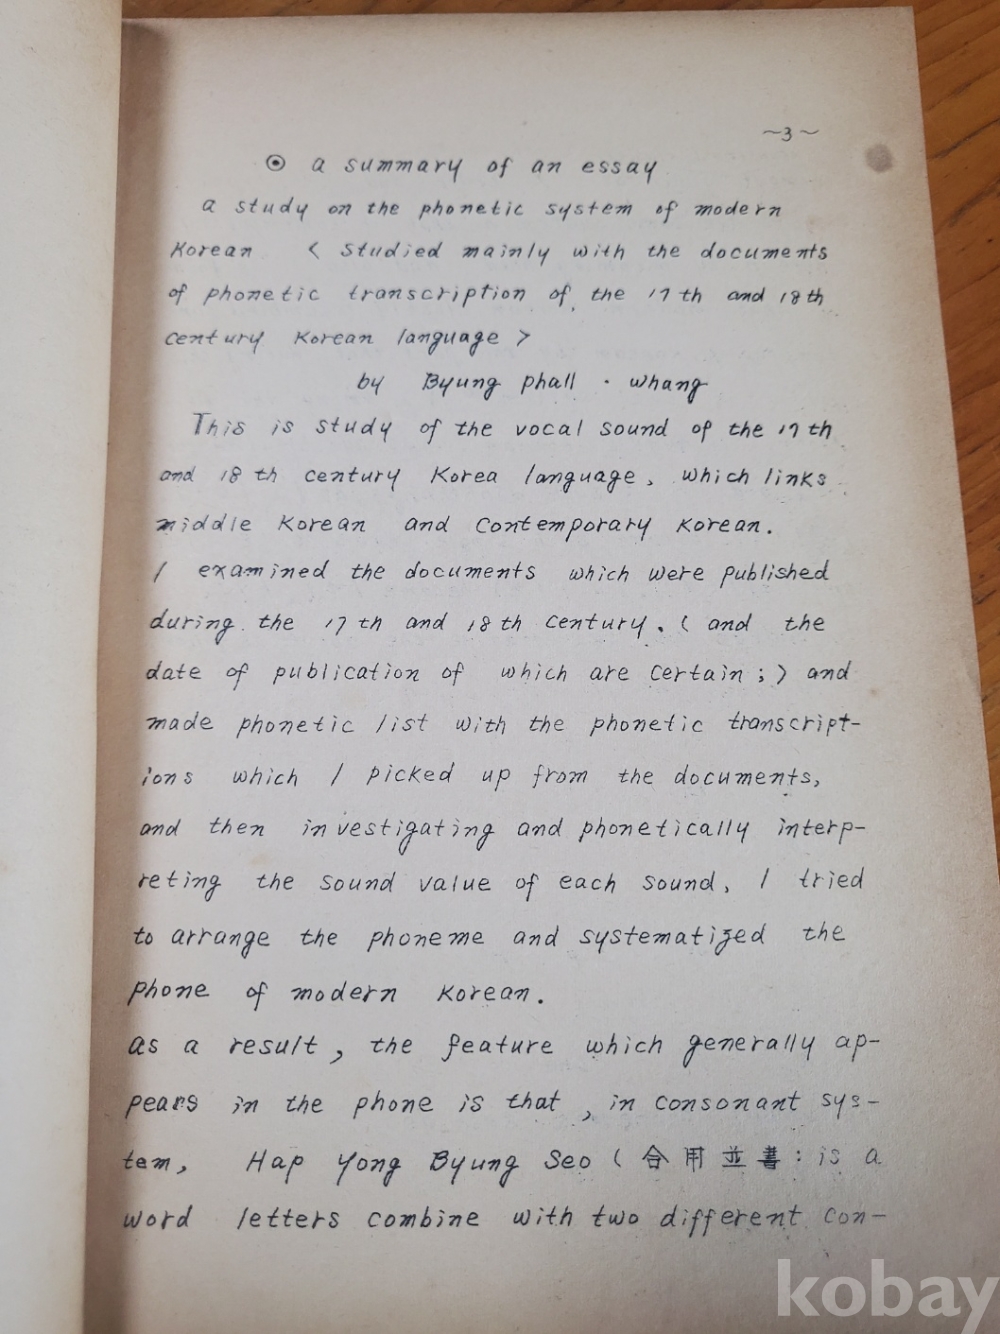 ~3~
⊙ a summary of an essay
a study on the phonetic system of modern
Korean < studied mainly with the documents
of phonetic transcription of the 17th and 18th
century Korean language >
by Byung phall · whang
This is study of the vocal sound of the 17th
and 18th century Korea language, which links
middle Korean and contemporary Korean.
I examined the documents which were published
during the 17th and 18th century. ( and the
date of publication of which are certain ; ) and
made phonetic list with the phonetic transcript-
ions which I picked up from the documents,
and then investigating and phonetically interp-
reting the sound value of each sound, I tried
to arrange the phoneme and systematized the
phone of modern Korean.
as a result, the feature which generally ap-
pears in the phone is that, in consonant sys-
tem, Hap Yong Byung Seo ( 合用並書 : is a
word letters combine with two different con-
kobay